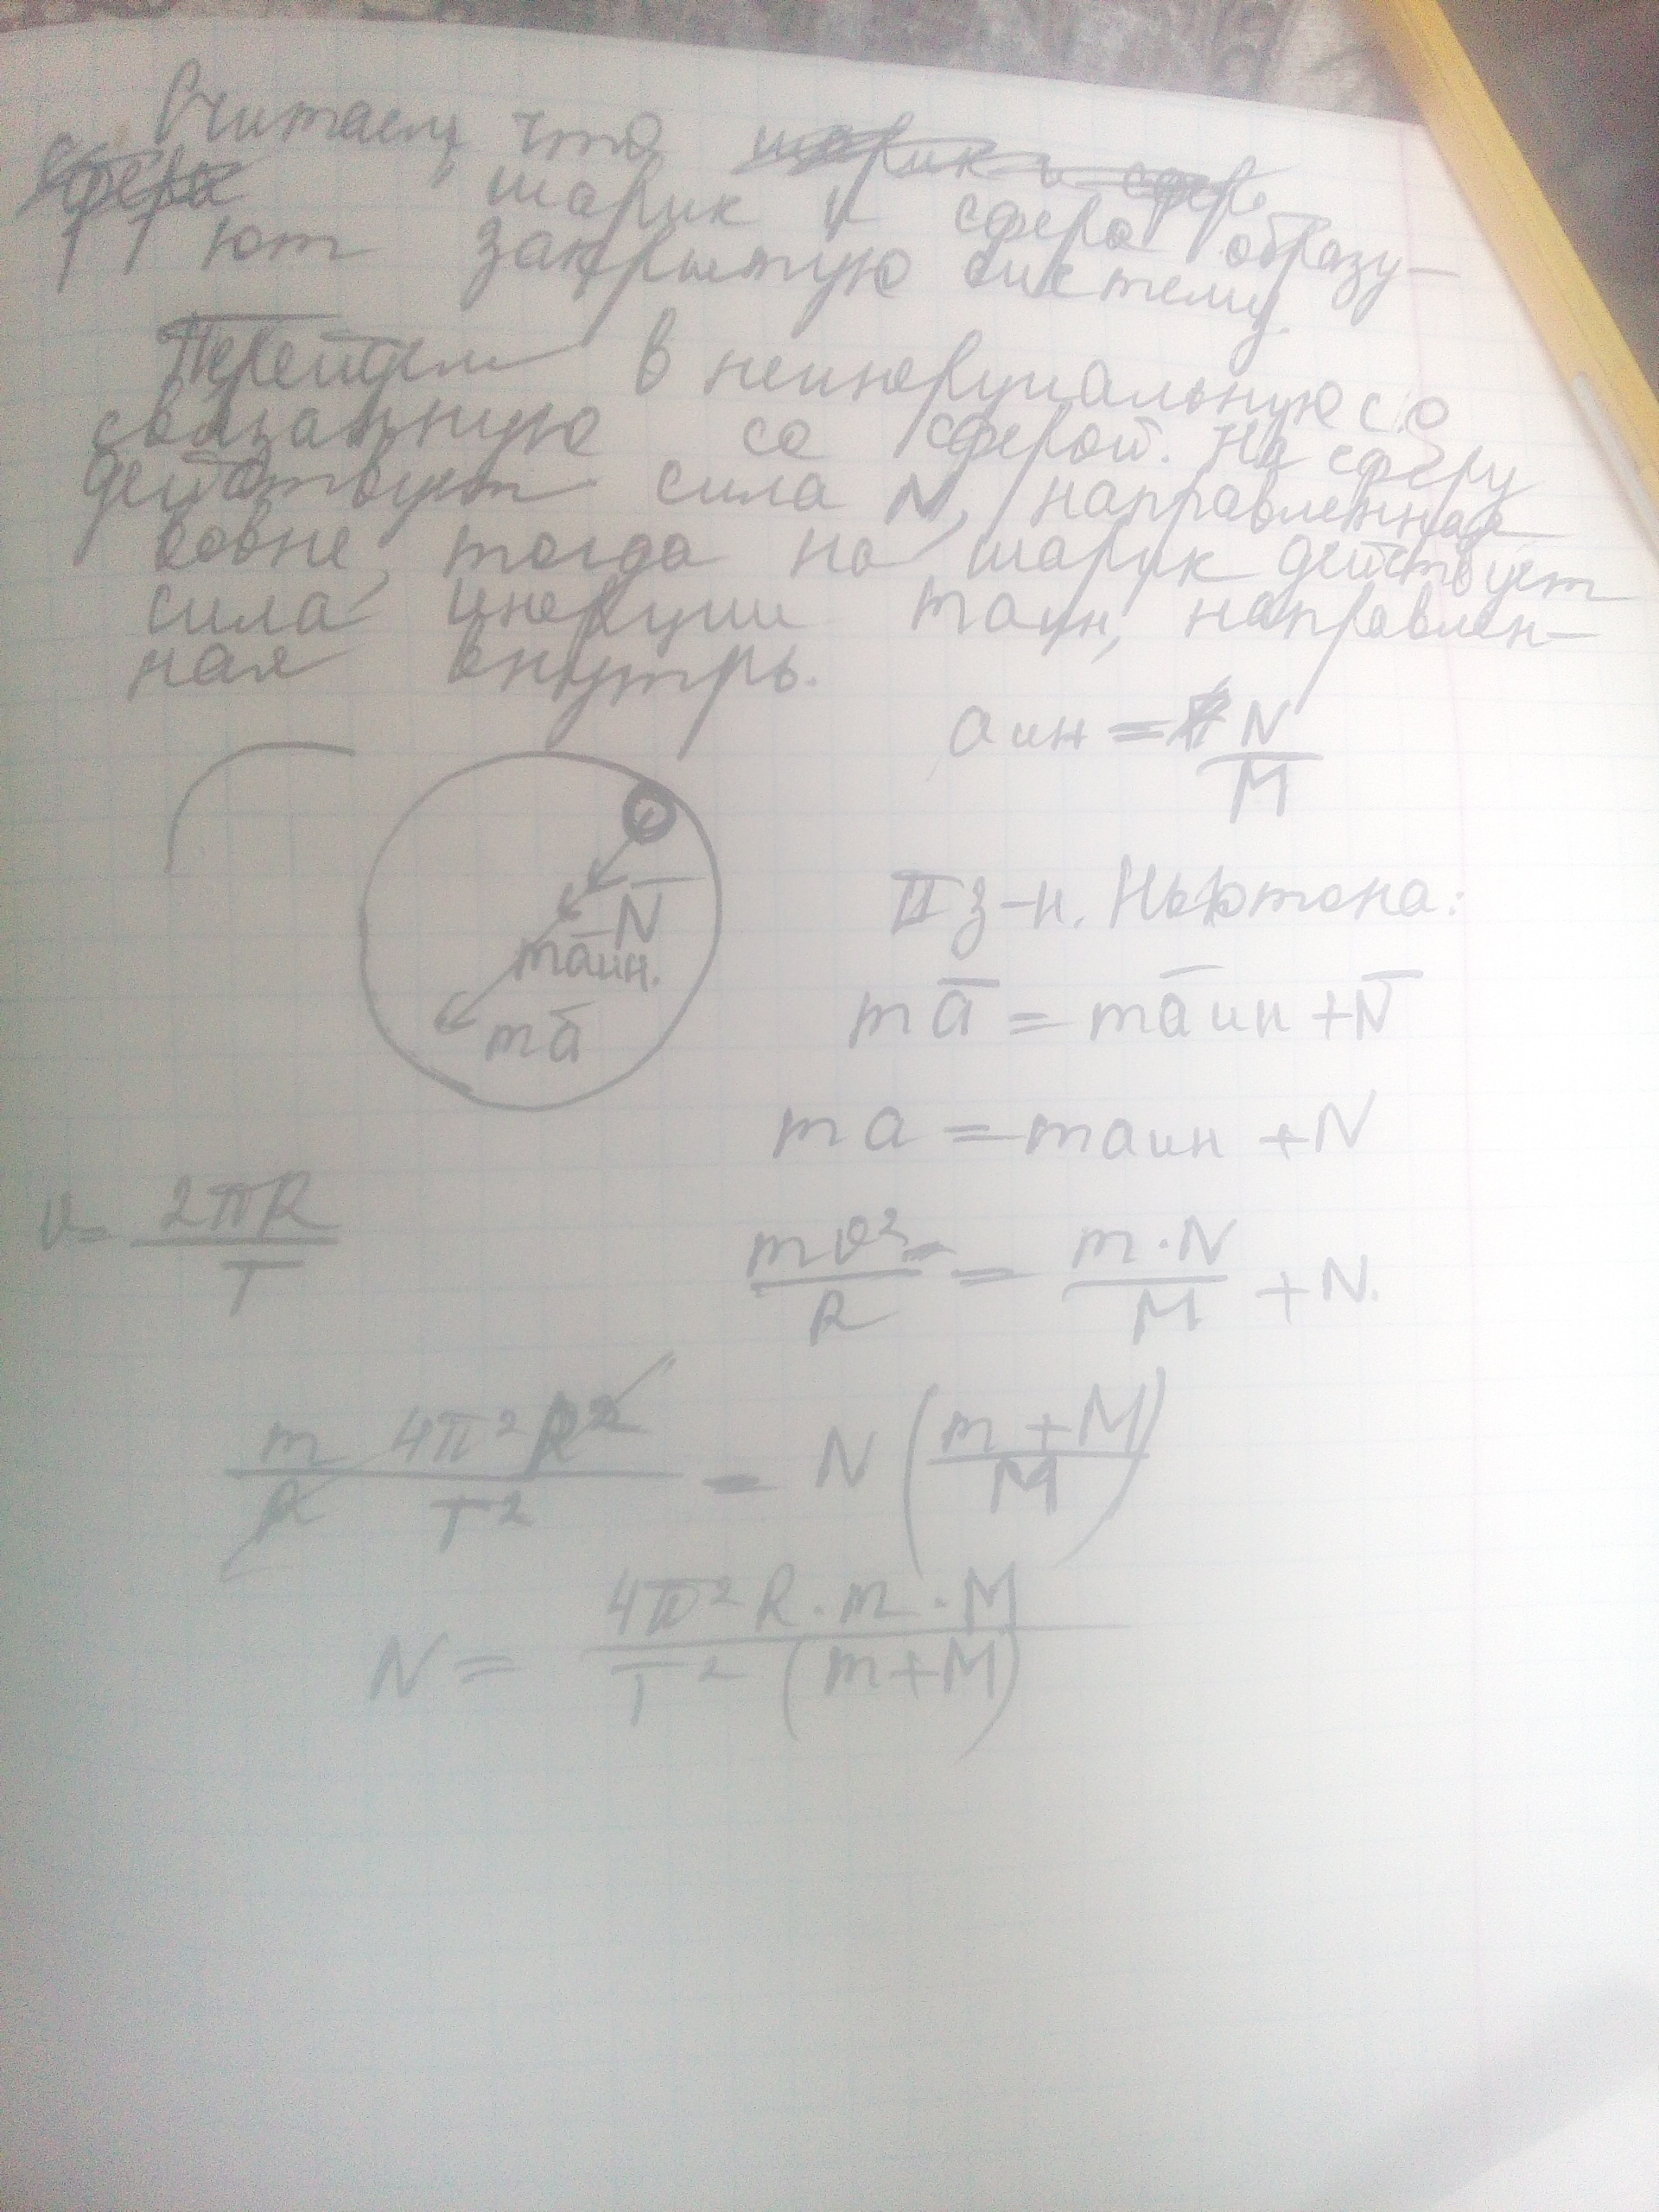 Считаем, что
шарик и сфера образу-
ют закрытую систему.
Перейдём в неинерциальную с.о
связанную со сферой. На сферу
действует сила N, направленная
вовне, тогда на шарик действует
сила инерции maин, направлен-
ная внутрь.
aин = N/M
N̅
ma̅ин.
ma̅
II з-н. Ньютона:
ma̅ = ma̅ин + N̅
ma = maин + N
v = 2πR/T
mv²/R = m·N/M + N.
m 4π²R²/R T² = N (m+M/M)
N = 4π²R·m·M/T²(m+M)